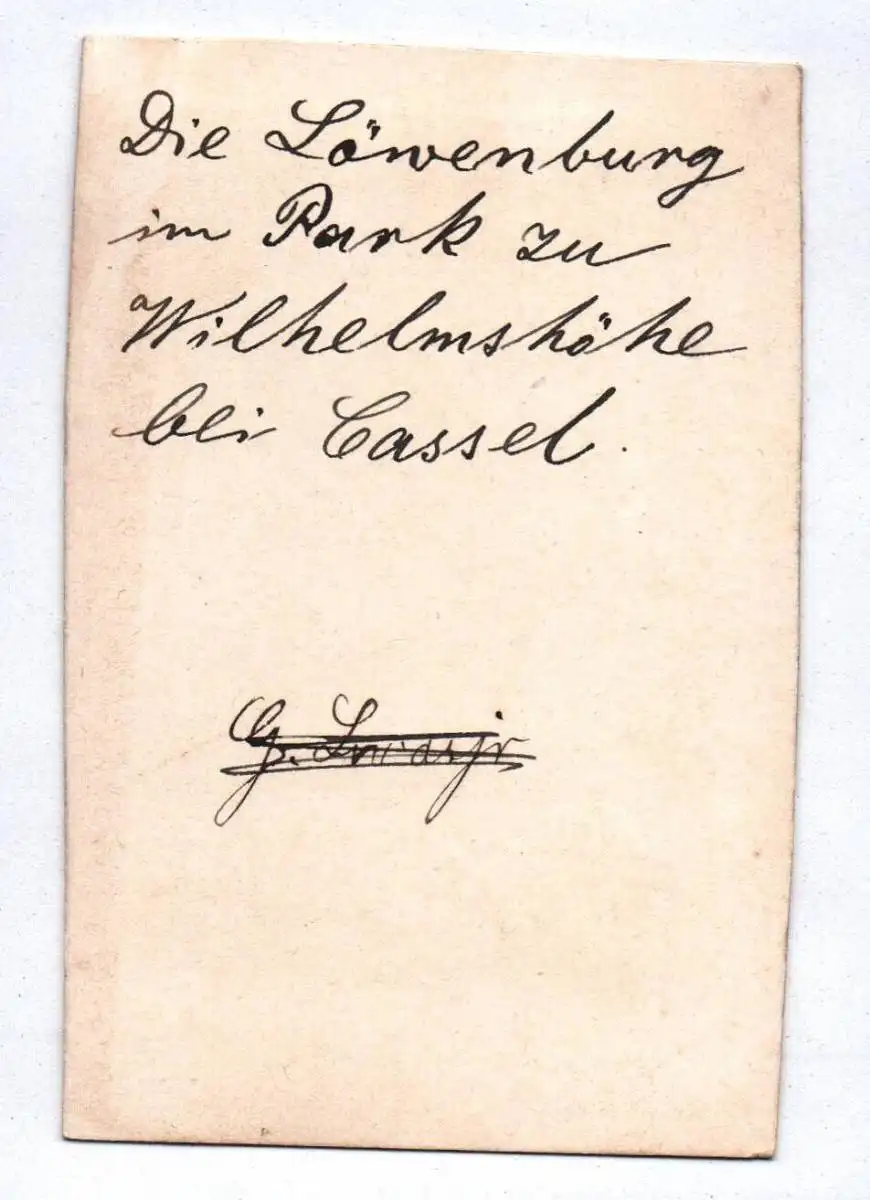 Die Löwenburg
im Park zu
Wilhelmshöhe
bei Cassel.
G.